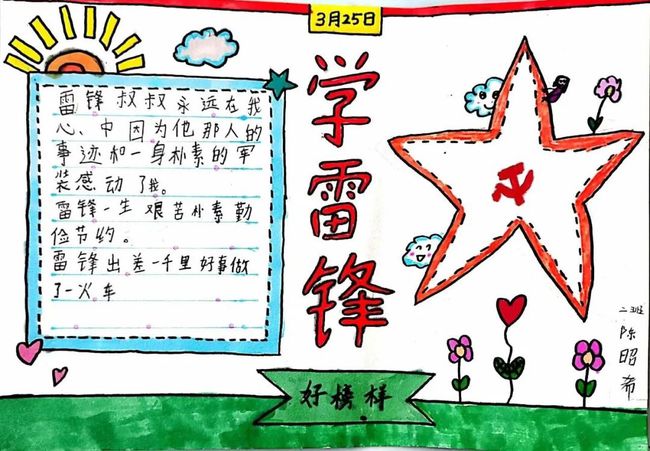 3月25日
学雷锋
雷锋叔叔永远在我
心、中因为他那人的
事迹和一身朴素的军
装感动了我。
雷锋一生艰苦朴素勤
俭节约。
雷锋出差一千里好事做
了一火车
二3班
陈昭希
好榜样